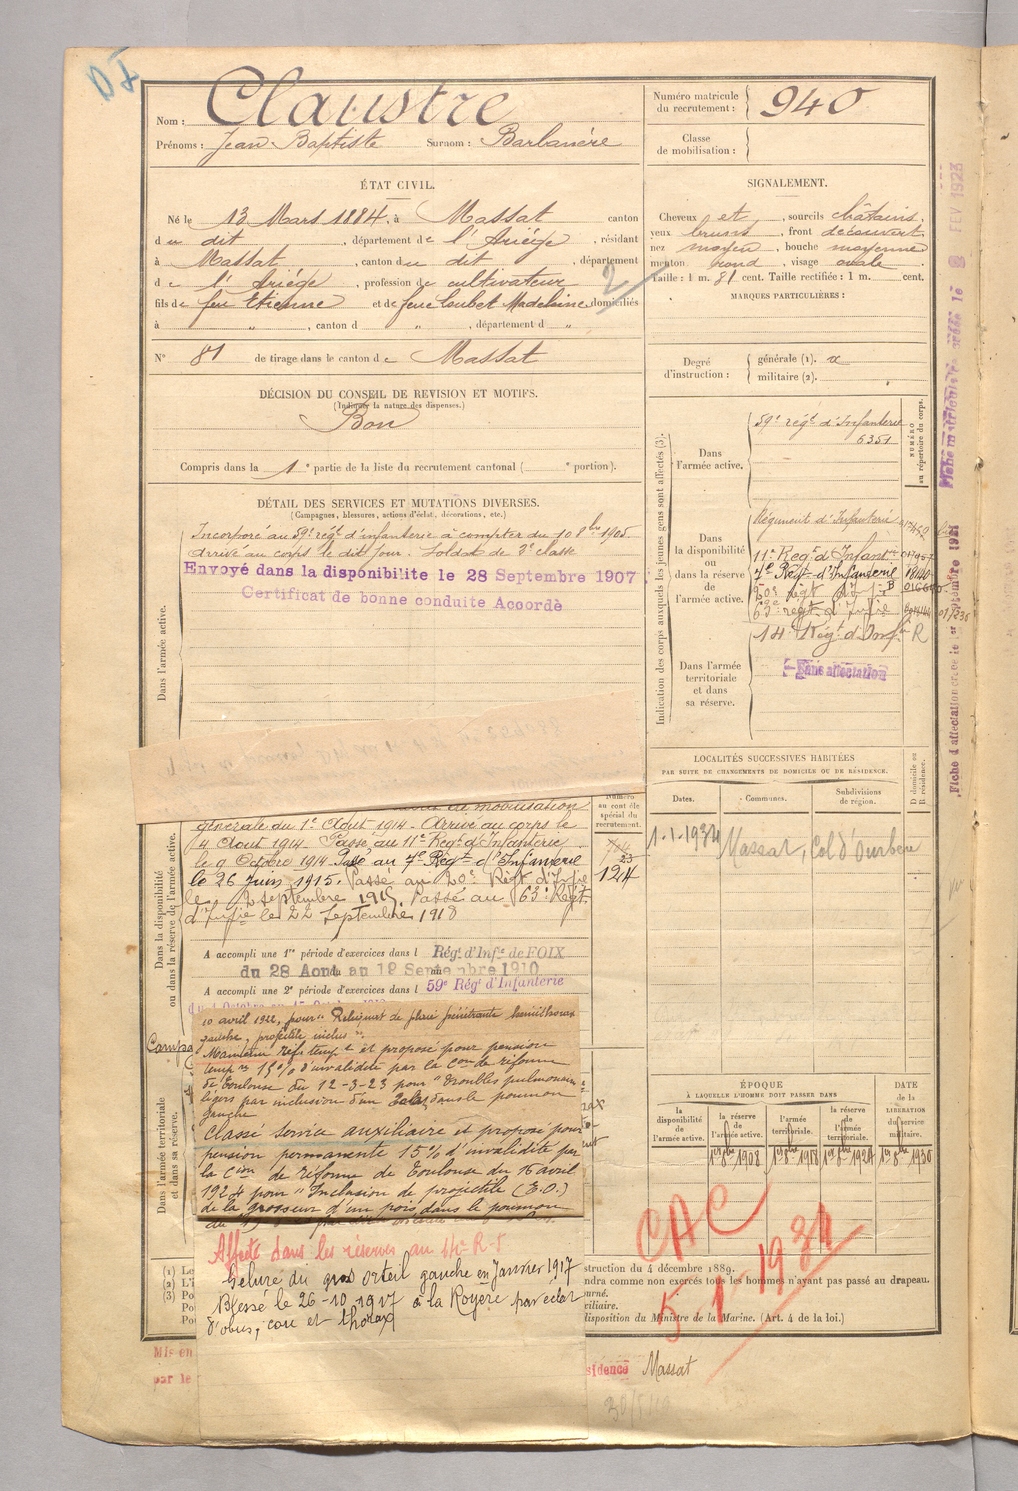 Nom : Claustre
Prénoms : Jean Baptiste Surnom : Barbanère
Numéro matricule du recrutement : 940
Classe de mobilisation :
ÉTAT CIVIL.
Né le 13 Mars 1884, à Massat canton
du dit, département de l'Ariége, résidant
à Massat, canton du dit, département
de l'Ariége, profession de cultivateur
fils de feu Etienne et de feue Loubet Madeleine domiciliés
à ", canton d ", département d "
2
N° 81 de tirage dans le canton de Massat
DÉCISION DU CONSEIL DE REVISION ET MOTIFS.
(Indiquer la nature des dispenses.)
Bon
Compris dans la 1e partie de la liste du recrutement cantonal ( e portion).
DÉTAIL DES SERVICES ET MUTATIONS DIVERSES.
(Campagnes, blessures, actions d'éclat, décorations, etc.)
Dans l'armée active.
Incorporé au 59e régt d'infanterie à compter du 10 8bre 1905
arrivé au corps le dit jour. Soldat de 2e classe
Envoyé dans la disponibilite le 28 Septembre 1907
Certificat de bonne conduite Accordé
Dans la disponibilité ou dans la réserve de l'armée active.
mobilisation
générale du 1er Aout 1914 - Arrivé au corps le
4 Aout 1914. Passé au 11e Regt d'Infanterie
le 9 Octobre 1914 Passé au 7e Régt d'Infanterie
le 26 Juin 1915. Passé au 20e Régt d'Infie
le 2 Septembre 1915. Passé au 63e Régt
d'Infie le 22 Septembre 1918
Numéro au contrôle spécial du recrutement.
23
124
A accompli une 1re période d'exercices dans l Régt d'Infie de FOIX
du 28 Aou au 18 Septembre 1910
A accompli une 2e période d'exercices dans l 59e Régt d'Infanterie
Campa
Dans l'armée territoriale et dans sa réserve.
10 avril 1922, pour " Reliquat de plaie pénétrante hémithorax
gauche, projectile inclus "
Maintenu réfé tempe et proposé pour pension
tempre 15% d'invalidité par la Con de réforme
de Toulouse du 12-3-23 pour " Troubles pulmonaires
légers par inclusion d'un éclat dans le poumon
gauche
Classé service auxiliaire et proposé pour
pension permanente 15% d'invalidité par
la Cion de réforme de Toulouse du 16 avril
1924 pour " Inclusion de projectile (E.O.)
de la grosseur d'un pois dans le poumon
Affecté dans les réserves au 14e R.I
Gelure du gros orteil gauche en Janvier 1917
Blessé le 26-10-1917 à la Royère par éclat
d'obus, cou et thorax
SIGNALEMENT.
Cheveux et, sourcils châtains,
yeux bruns, front découvert,
nez moyen, bouche moyenne
menton rond, visage ovale
Taille : 1 m. 81 cent. Taille rectifiée : 1 m. cent.
MARQUES PARTICULIÈRES :
Degré d'instruction : générale (1). 2
militaire (2).
Indication des corps auxquels les jeunes gens sont affectés (3).
NUMÉRO au répertoire du corps.
Dans l'armée active.
59e régt d'Infanterie
6351
Dans la disponibilité ou dans la réserve de l'armée active.
Régiment d'Infanterie
11e Regt d'Infantrie
7e Régt d'Infanterie
20e régt d'Infie
63e régt d'Infie
14e Régt d'Infie R
Dans l'armée territoriale et dans sa réserve.
Sans affectation
LOCALITÉS SUCCESSIVES HABITÉES
PAR SUITE DE CHANGEMENTS DE DOMICILE OU DE RÉSIDENCE.
Dates. Communes. Subdivisions de région. D domicile ou R résidence.
1-1-1934 Massat, Col d'Ourbere
ÉPOQUE
À LAQUELLE L'HOMME DOIT PASSER DANS
DATE de la LIBÉRATION du service militaire.
la disponibilité de l'armée active.
la réserve de l'armée active.
l'armée territoriale.
la réserve de l'armée territoriale.
1er 8bre 1908 1er 8bre 1918 1er 8bre 1924 1er 8bre 1930
CAC
5 1 1934
struction du 4 décembre 1889.
ndra comme non exercés tous les hommes n'ayant pas passé au drapeau.
urné.
xiliaire.
disposition du Ministre de la Marine. (Art. 4 de la loi.)
(1) Le
(2) L'i
(3) Po
Mis en
par le
sidence Massat
Fiche d'affectation créée le 1er Septembre 1921